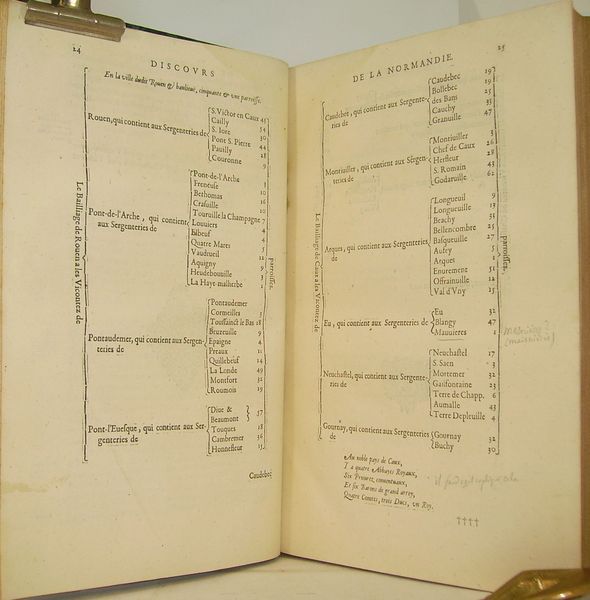 24
DISCOVRS
En la ville dudit Rouen & banlieuë, cinquante & une parroisse.
Le Bailliage de Rouen a les Vicontez de
Rouen, qui contient aux Sergenteries de
S. Victor en Caux 45
Cailly 54
S. Iore 30
Pont S. Pierre 44
Pauilly 28
Couronne 9
Pont-de-l'Arche, qui contient
aux Sergenteries de
Pont-de-l'Arche
Freneuse
Bethomas
Crasuille 16
Touruille la Champagne 7
Louuiers
Elbeuf
Quatre Mares
Vaudreuil
Aquigny 9
Heudebouuille
La Haye malherbe 1
Pontaudemer, qui contient aux Sergen-
teries de
Pontaudemer
Cormeilles
Toussainct le Bas 18
Burzeuille 9
Epaigne 4
Preaux 11
Quillebeuf 14
La Londe 49
Montfort 32
Roumois 19
Pont-l'Euesque, qui contient aux Ser-
genteries de
Diue &
Beaumont 37
Touques 18
Cambremer 36
Honnefleur 15
parroisses.
Caudebec
25
DE LA NORMANDIE.
Le Bailliage de Caux a les Vicontez de
Caudebec, qui contient aux Sergente-
ries de
Caudebec 19
Bollebec 19
des Bans 25
Cauchy 33
Granuille 47
Montiuiller, qui contient aux Sergen-
teries de
Montiuiller 3
Chef de Caux 26
Herfleur 28
S. Romain 43
Godaruille 62
Arques, qui contient aux Sergenteries
de
Longueuil 9
Longueuille 13
Beachy 31
Bellencombre 25
Basqueuille 27
Aufey 5
Arques 1
Enurement 51
Offrainuille 12
Val d'Vny 15
Eu, qui contient aux Sergenteries de
Eu 32
Blangy 47
Mauuieres 1
Neuchastel, qui contient aux Sergente-
ries de
Neuchastel 17
S. Saen 3
Mortemer 32
Gaillfontaine 23
Terre de Chapp. 6
Aumalle 43
Terre Depleuille 4
Gournay, qui contient aux Sergenteries
de
Gournay 32
Buchy 30
parroisses.
Au noble pays de Caux,
Y a quatre Abbayes Royaux,
Six Prieurez conuentuaux,
Et six Barons de grand arroy,
Quatre Comtes, trois Ducs, un Roy.
††††